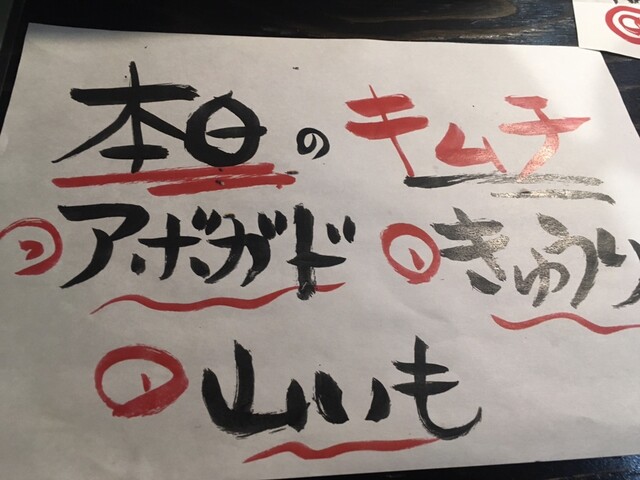 本日のキムチ
アボガド きゅうり
山いも